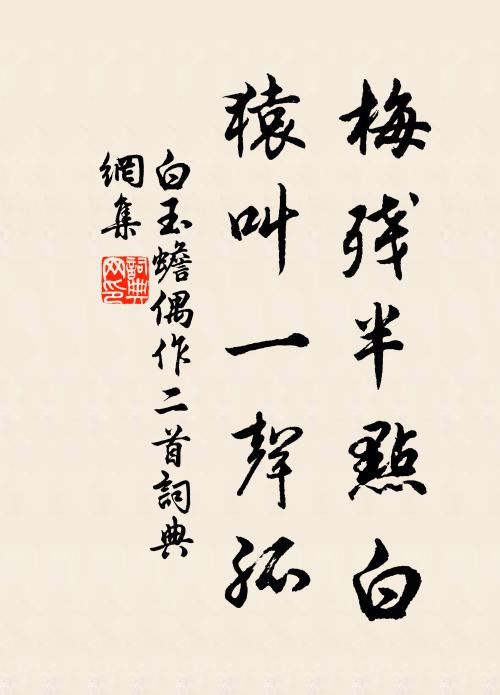 梅残半點白
猿叫一聲孤
白玉蟾偶作二首詞典
網集
詞典網印